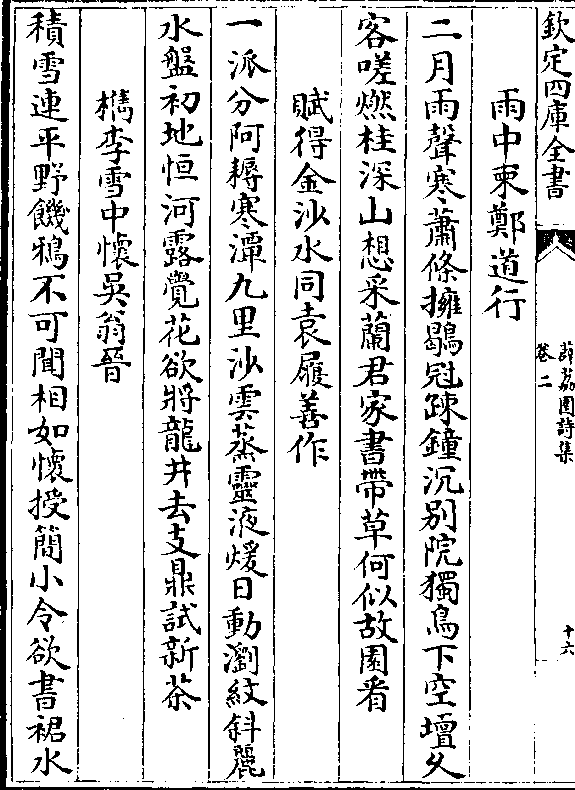 欽定四庫全書
薜荔園詩集
卷二
十六
雨中柬鄭道行
二月雨聲寒蕭條擁鶡冠疎鐘沉别院獨鳥下空壇久
客嗟燃桂深山想采蘭君家書帶草何似故園看
賦得金沙水同袁履善作
一派分阿耨寒潭九里沙雲蒸靈液煖日動瀏紋斜麗
水盤初地恒河露覺花欲將龍井去支鼎試新茶
檇李雪中懷吳翁晉
積雪連平野饑鴉不可聞相如懷授簡小令欲書裙水